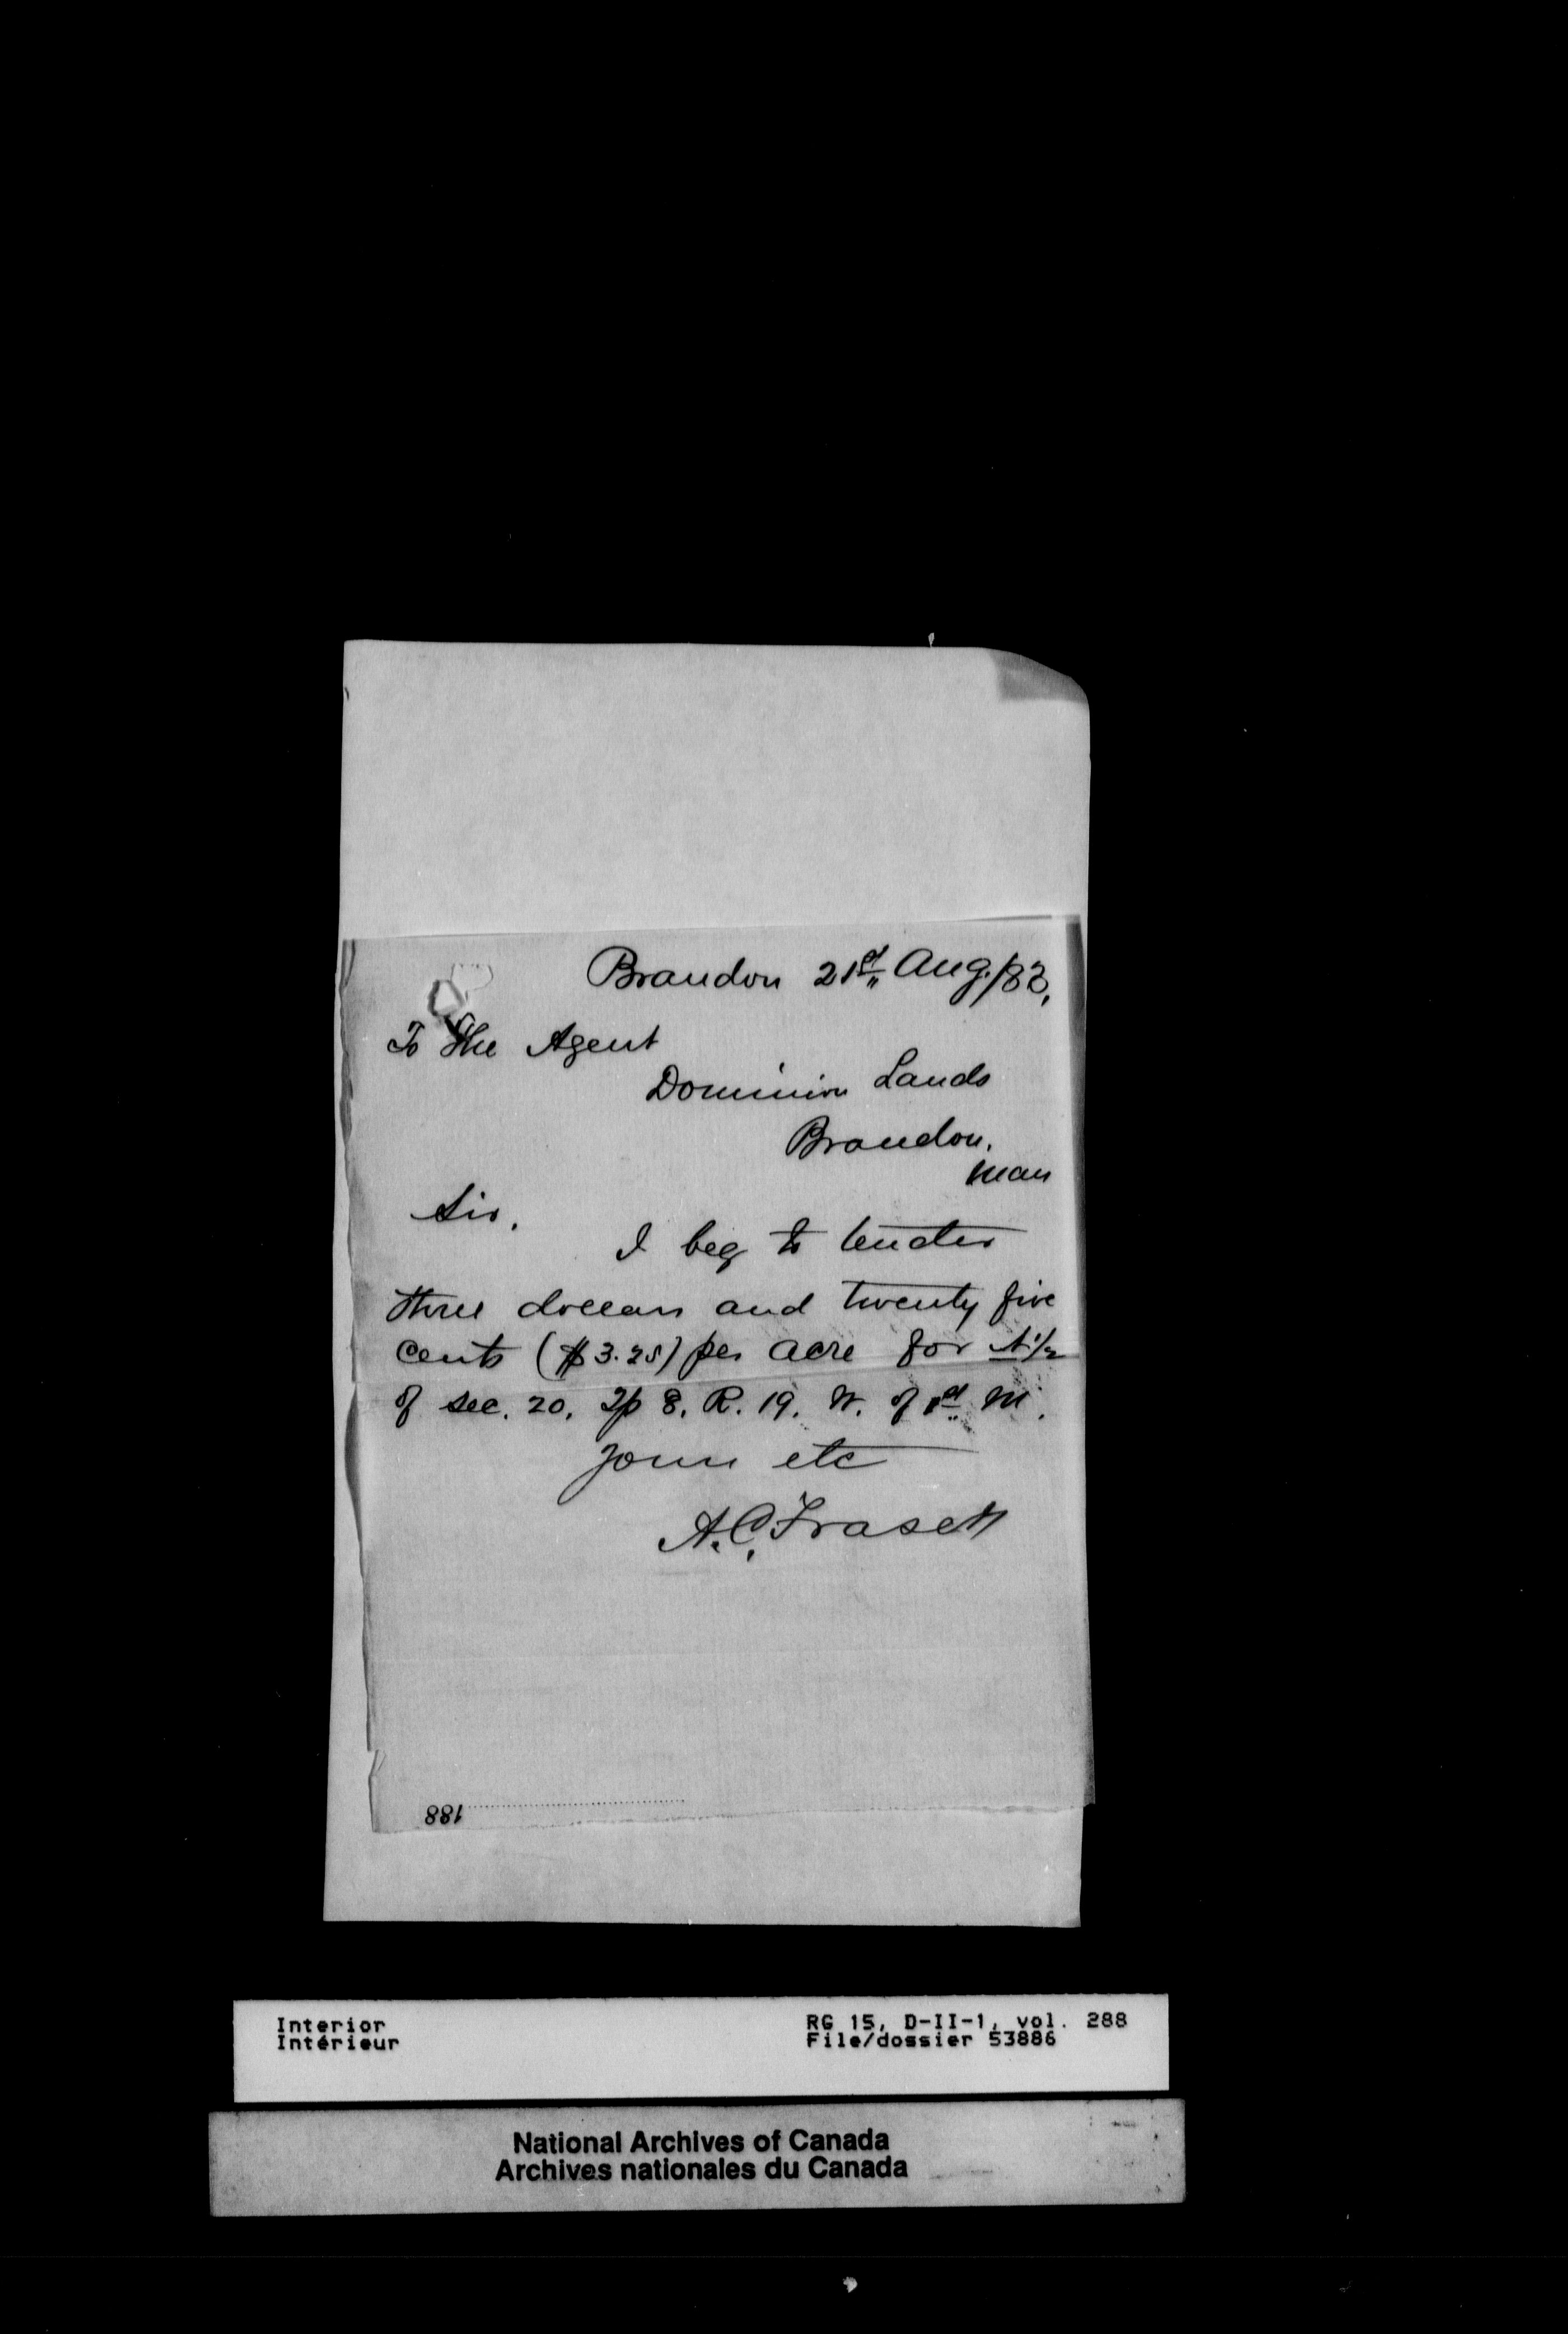 Brandon 21st Aug./83,
To The Agent
Dominion Lands
Brandon,
Man
Sir,
I beg to tender
three dollars and twenty five
cents ($3.25) per acre for N 1/2
of sec. 20, Tp 8, R. 19, W. of 1st M.
Yours etc
A.C. Fraser
188
Interior
Intérieur
RG 15, D-II-1, vol. 288
File/dossier 53886
National Archives of Canada
Archives nationales du Canada